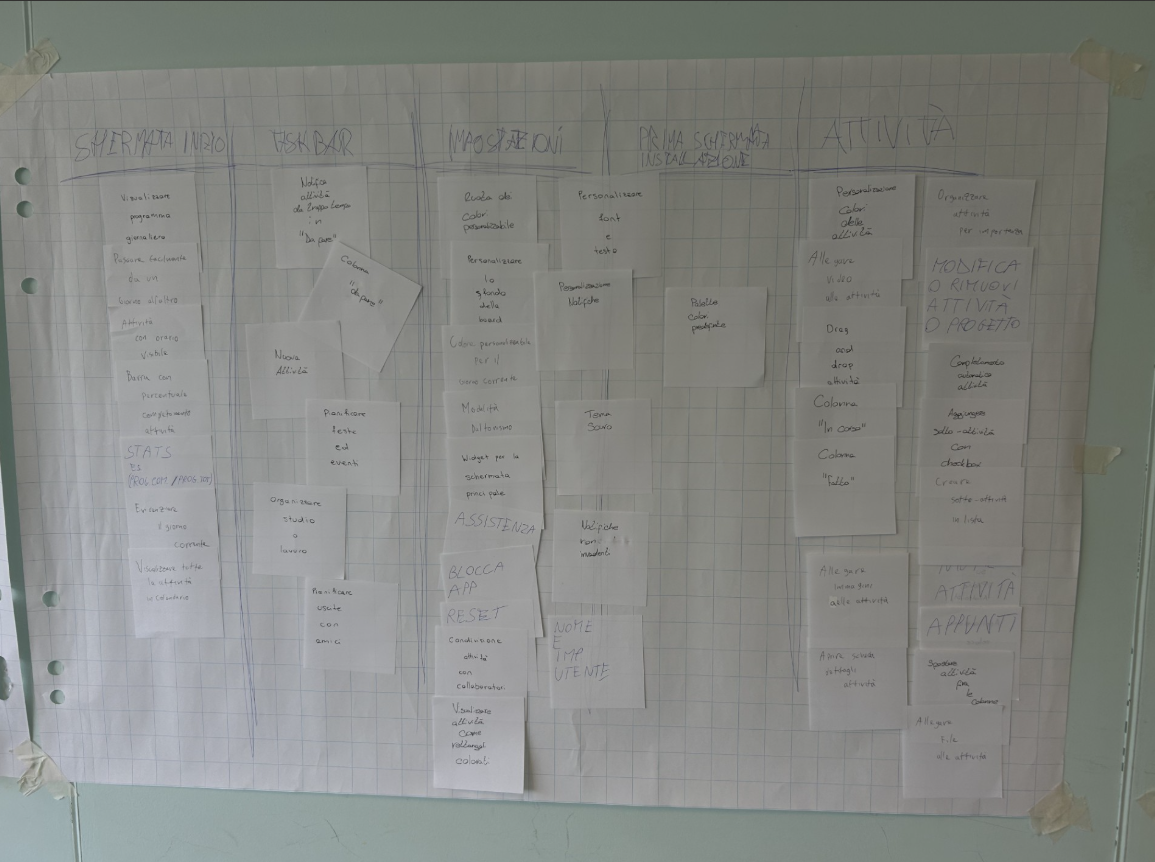 SHERMATA INIZIO
TASKBAR
IMPOSTAZIONI
PRIMA SCHERMATA
INSTALLAZIONE
ATTIVITÀ
Visualizzare
programma
giornaliero
Passare facilmente
da un
giorno all'altro
Attività
con orario
visibile
Barra con
percentuale
completamento
attività
STATS
ES
Evidenziare
il giorno
corrente
Visualizzare tutte
le attività
in calendario
Notifica
attività
da troppo tempo
in
"Da fare"
Colonna
"da fare"
Nuova
Attività
Pianificare
feste
ed
eventi
Organizzare
studio
o
lavoro
Pianificare
uscite
con
amici
Ruota dei
Colori
personalizzabile
Personalizzare
lo
sfondo
della
board
Colori personalizzabile
per il
giorno corrente
Modalità
Daltonismo
Widget per la
schermata
principale
ASSISTENZA
BLOCCA
APP
RESET
Condivisione
attività
con
collaboratori
Visualizzare
attività
come
rettangoli
colorati
Personalizzare
font
e
testo
Personalizzazione
Notifiche
Tema
Scuro
Notifiche
non
invadenti
NOME
E
IMP
UTENTE
Palette
Colori
predefinite
Personalizzazione
Colori
delle
attività
Allegare
Video
alle attività
Drag
and
drop
attività
Colonna
"In corso"
Colonna
"Fatto"
Allegare
immagini
alle attività
Aprire scheda
dettagli
attività
Organizzare
attività
per importanza
MODIFICA
O RIMUOVI
ATTIVITÀ
O PROGETTO
Completamento
automatico
attività
Aggiungere
sotto-attività
con
checkbox
Creare
sotto-attività
in lista
ATTIVITÀ
APPUNTI
Spostare
attività
fra
le
colonne
Allegare
File
alle attività